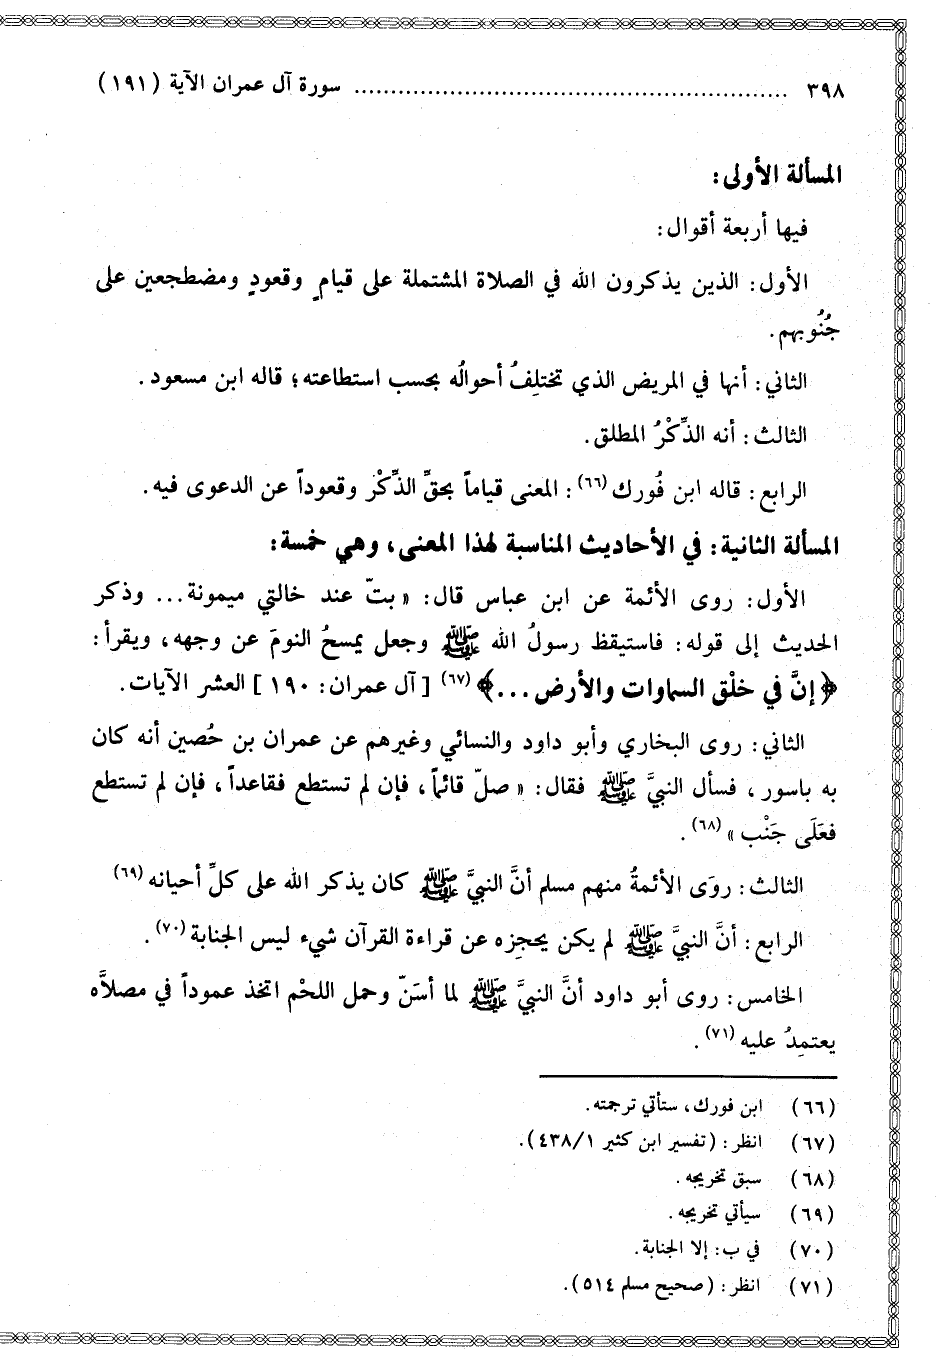 ٣٩٨ ........................................................ سورة آل عمران الآية (١٩١)
المسألة الأولى:
فيها أربعة أقوال:
الأول: الذين يذكرون الله في الصلاة المشتملة على قيامٍ وقعودٍ ومضطجعين على
جُنُوبهم.
الثاني: أنها في المريض الذي تختلِفُ أحوالُه بحسب استطاعته؛ قاله ابن مسعود.
الثالث: أنه الذِّكْرُ المطلق.
الرابع: قاله ابن فُورك(٦٦): المعنى قياماً بحقِّ الذِّكْر وقعوداً عن الدعوى فيه.
المسألة الثانية: في الأحاديث المناسبة لهذا المعنى، وهي خمسة:
الأول: روى الأئمة عن ابن عباس قال: «بتّ عند خالتي ميمونة... وذكر
الحديث إلى قوله: فاستيقظ رسولُ الله ﷺ وجعل يمسحُ النومَ عن وجهه، ويقرأ:
﴿إنَّ في خلْق السماوات والأرض...﴾(٦٧) [آل عمران: ١٩٠] العشر الآيات.
الثاني: روى البخاري وأبو داود والنسائي وغيرهم عن عمران بن حُصين أنه كان
به باسور، فسأل النبيَّ ﷺ فقال: «صلّ قائماً، فإن لم تستطع فقاعداً، فإن لم تستطع
فعَلَى جَنْب»(٦٨).
الثالث: روَى الأئمةُ منهم مسلم أنَّ النبيَّ ﷺ كان يذكر الله على كلِّ أحيانه(٦٩)
الرابع: أنَّ النبيَّ ﷺ لم يكن يحجِزه عن قراءة القرآن شيء ليس الجنابة(٧٠).
الخامس: روى أبو داود أنَّ النبيَّ ﷺ لما أسَنّ وحمل اللحْم اتخذ عموداً في مصلاَّه
يعتمِدُ عليه(٧١).
(٦٦) ابن فورك، ستأتي ترجمته.
(٦٧) انظر: (تفسير ابن كثير ٤٣٨/١).
(٦٨) سبق تخريجه.
(٦٩) سيأتي تخريجه.
(٧٠) في ب: إلا الجنابة.
(٧١) انظر: (صحيح مسلم ٥١٤).